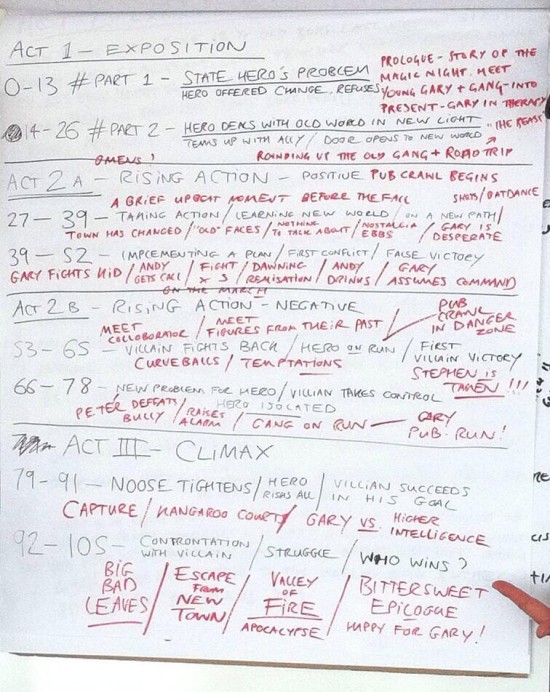 ACT 1 - EXPOSITION
0-13 # PART 1 - STATE HERO'S PROBLEM
HERO OFFERED CHANGE. REFUSES
PROLOGUE - STORY OF THE
MAGIC NIGHT. MEET
YOUNG GARY + GANG - INTO
PRESENT - GARY IN THERAPY
14-26 # PART 2 - HERO DEALS WITH OLD WORLD IN NEW LIGHT
TEAMS UP WITH ALLY / DOOR OPENS TO NEW WORLD
OMENS!
ROUNDING UP THE OLD GANG + ROAD TRIP
ACT 2A - RISING ACTION - POSITIVE PUB CRAWL BEGINS
A BRIEF UPBEAT MOMENT BEFORE THE FALL
SHOTS/OATDANCE
27-39 - TAKING ACTION / LEARNING NEW WORLD / ON A NEW PATH /
TOWN HAS CHANGED / "OLD" FACES / NOTHING TO TALK ABOUT / NOSTALGIA EBBS / GARY IS DESPERATE
39-52 - IMPLEMENTING A PLAN / FIRST CONFLICT / FALSE VICTORY
GARY FIGHTS KID / ANDY GETS CALL / FIGHT X 3 / DAWNING REALISATION / ANDY DRINKS / GARY ASSUMES COMMAND
ON THE MARCH
ACT 2B - RISING ACTION - NEGATIVE
PUB
CRAWL
IN DANGER
ZONE
MEET COLLOBORATOR / MEET FIGURES FROM THEIR PAST
53-65 - VILLAIN FIGHTS BACK / HERO ON RUN / FIRST VILLAIN VICTORY
CURVEBALLS / TEMPTATIONS
STEPHEN IS
TAKEN !!!
66-78 - NEW PROBLEM FOR HERO / VILLIAN TAKES CONTROL
HERO ISOLATED
PETER DEFEATS BULLY / RAISES ALARM / GANG ON RUN - GARY PUB RUN!
ACT III - CLIMAX
79-91 - NOOSE TIGHTENS / HERO RISKS ALL / VILLIAN SUCCEEDS IN HIS GOAL
CAPTURE / KANGAROO COURT / GARY VS. HIGHER INTELLIGENCE
92-105 - CONFRONTATION WITH VILLAIN / STRUGGLE / WHO WINS?
BIG BAD LEAVES / ESCAPE FROM NEW TOWN / VALLEY OF FIRE APOCALYPSE / BITTERSWEET EPILOGUE HAPPY FOR GARY!